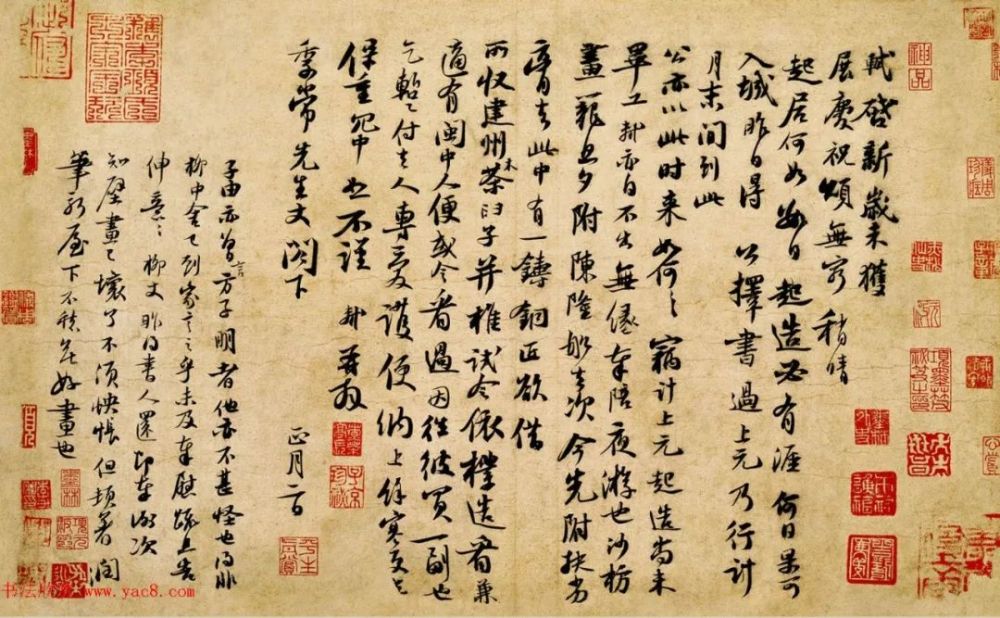 軾啓新歲未獲
展慶祝頌無窮稍晴
起居何如數日起造必有涯何日果可
入城昨日得公擇書過上元乃行計
月末間到此
公亦以此時来如何々竊計上元起造尚未
畢工軾亦自不出無緣奉陪夜游也沙枋
畫籠旦夕附陳隆船去次今先附扶劣
膏去此中有一鑄銅匠欲借
所收建州木茶臼子并椎試令依樣造看兼
適有閩中人便或令看過因往彼買一副也
乞暫付去人專愛護便納上餘寒更乞
保重冗中恕不謹軾再拜
季常先生丈閤下正月二日
子由亦曾言方子明者他亦不甚怪也得非
柳中舍已到家言之乎未及奉慰疏且告
伸意々柳丈昨得書人還即奉謝次
知壁畫已壞了不須怏悵但頓著潤
筆新屋下不愁無好畫也
神品
平生真賞
www.yac8.com